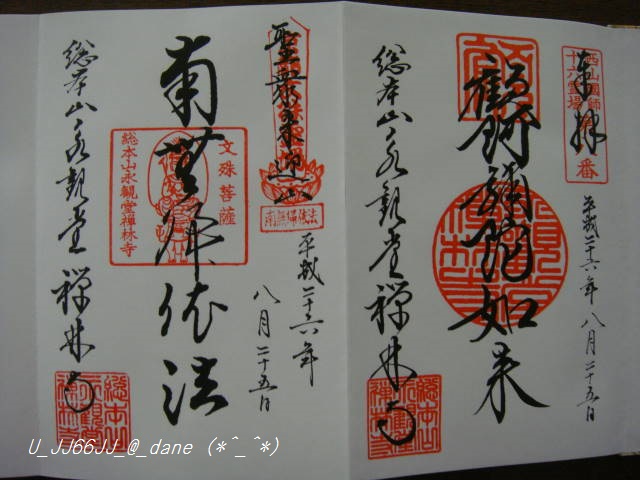 奉拝
西山國師
十六霊場
番
平成二十六年八月二十五日
顧阿弥陀如来
総本山永観堂禅林寺
聖衆来迎山
南無帰依法
平成二十六年
八月二十五日
南無帰依法
文殊菩薩
総本山永観堂禅林寺
総本山永観堂禅林寺
U_JJ66JJ_@_dane (*^_^*)